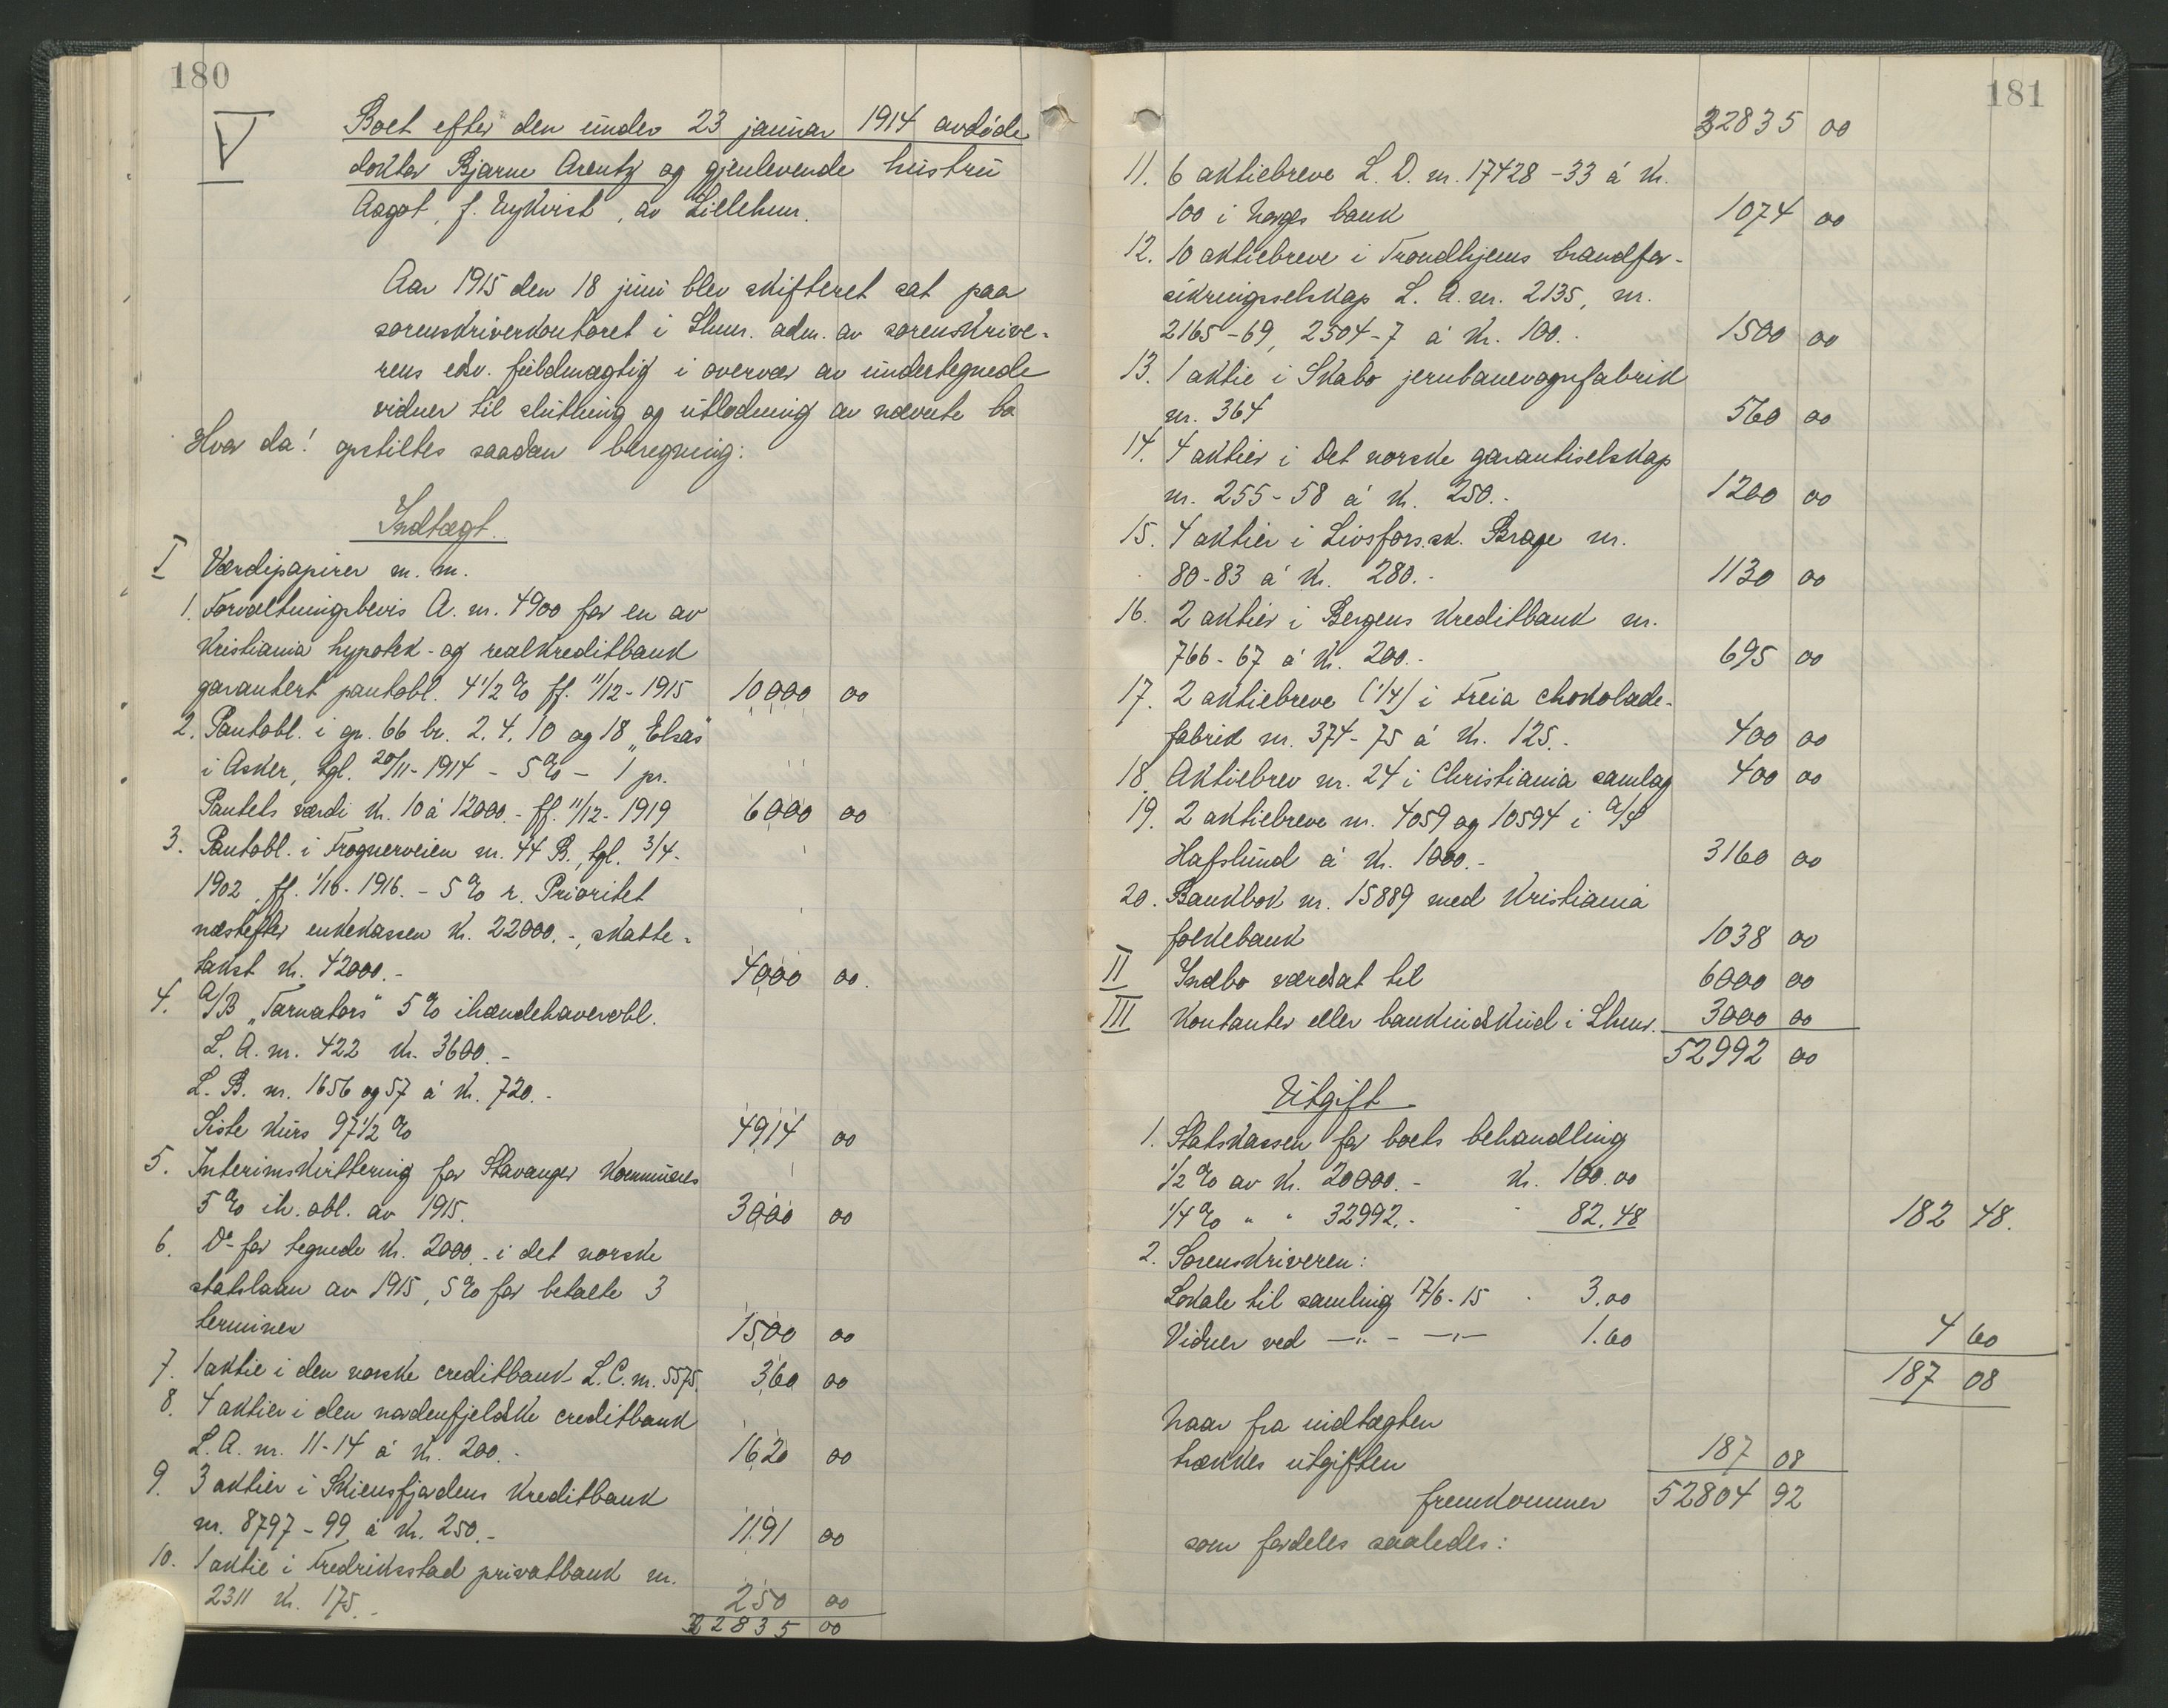 180
V
Boet efter den under 23 januar 1914 avdøde
doktor Bjarne Arentz og gjenlevende hustru
Aagot, f. Nykvist, av Lillehmr.
Aar 1915 den 18 juni blev skifteret sat paa
sorenskriverkontoret i Lhmr. adm. av sorenskrive-
rens edsv. fuldmægtig i overvær av undertegnede
vidner til slutning og utlodning av nævnte bo
Hvor da! opstilles saadan beregning:
Indtægt.
I Værdipapirer m. m.
1. Forvaltningsbevis A. nr. 4900 for en av
Kristiania hypotek- og realkreditbank
garantert pantobl. 4 1/2 % ff. 11/12-1915 10000 00
2. Pantobl. i gr. 66 br. 2. 4. 10 og 18 „Elsas"
i Asker, tgl. 20/11-1914 - 5 % - 1 pr.
Pantets værdi kr. 10 á 12000.- ff. 11/12-1919 6000 00
3. Pantobl. i Frognerveien nr. 44 B., tgl. 3/4-
1902, ff. 1/10-1916. - 5 % r. Prioritet
næstefter enkekassen kr. 22000.-, skatte-
takst kr. 42000.- 4000 00.
4. A/B „Tarnators" 5 % ihændehaverobl.
L. A. nr. 422 kr. 3600.-
L. B. nr. 1656 og 57 á kr. 720.-
Siste kurs 97 1/2 % 4914 00
5. Interimskvittering for Stavanger kommunes
5 % ih. obl. av 1915. 3000 00
6. Do for tegnede kr. 2000.- i det norske
statslaan av 1915, 5 % for betalte 3
terminer 1500 00
7. 1 aktie i den norske creditbank L. C. nr. 5575. 360 00
8. 4 aktier i den nordenfjeldske creditbank
L. A. nr. 11-14 á kr. 200.- 1620 00
9. 3 aktier i Skiensfjordens kreditbank
nr. 8797-99 á kr. 250.- 1191 00
10. 1 aktie i Fredriksstad privatbank nr.
2311 kr. 175.- 250 00
32835 00
181
32835 00
11. 6 aktiebreve L. D. nr. 17428-33 á kr.
100 i Norges bank 1074 00
12. 10 aktiebreve i Trondhjems brandfor-
sikringsselskap L. A. nr. 2135, nr.
2165-69, 2504-7 á kr. 100.- 1500 00
13. 1 aktie i Skabo jernbanevognfabrik
nr. 364 560 00
14. 4 aktier i Det norske garantiselskap
nr. 255-58 á kr. 250.- 1200 00
15. 4 aktier i Livsfors.sk. Brage nr.
80-83 á kr. 280.- 1130 00
16. 2 aktier i Bergens kreditbank nr.
766-67 á kr. 200.- 695 00
17. 2 aktiebreve (1/4) i Freia chokolade-
fabrik nr. 374-75 á kr. 125.- 400 00
18. Aktiebrev nr. 24 i Christiania samlag 400 00
19. 2 aktiebreve nr. 4059 og 10594 i A/S
Hafslund á kr. 1000.- 3160 00
20. Bankbok nr. 15889 med Kristiania
folkebank 1038 00
II Indbo værdsat til 6000 00
III Kontanter eller bankindskud i Lhmr. 3000 00
52992 00
Utgift
1. Statskassen for boets behandling
1/2 % av kr. 20000.- kr. 100.00
1/4 % " " 32992.- " 82.48 182 48.
2. Sorenskriveren:
Lokale til samling 17/6-15 " 3.00
Vidner ved —"— —"— 1.60 4 60
187 08
Naar fra indtægten
trækkes utgiften 187 08
fremkommer 52804 92
som fordeles saaledes: